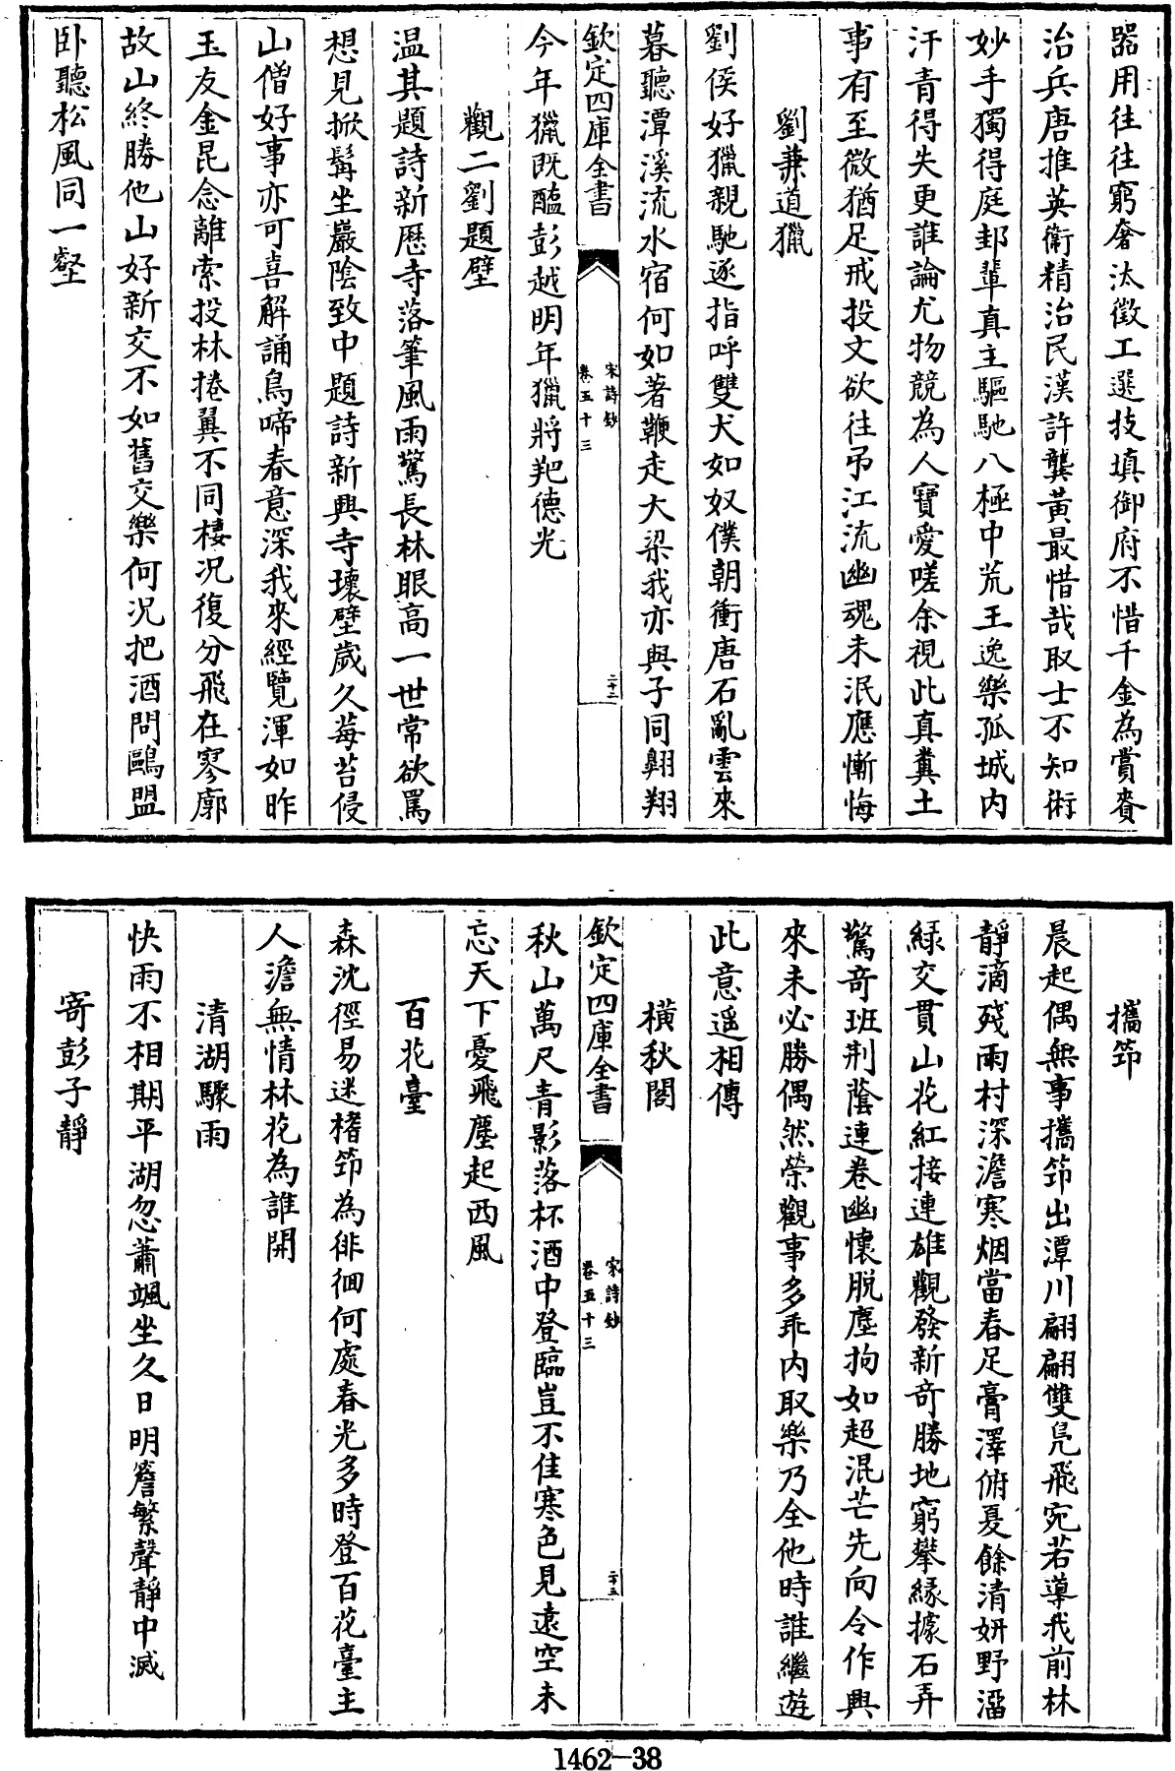 器用往往窮奢汰徵工選技填御府不惜千金為賞賚
治兵唐推英衛精治民漢許龔黃最惜哉取士不知術
妙手獨得庭邽輩真主驅馳八極中荒王逸樂孤城内
汗青得失更誰論尤物競為人寶愛嗟余視此真糞土
事有至微猶足戒投文欲往弔江流幽魂未泯應慚悔
劉兼道獵
劉侯好獵親馳逐指呼雙犬如奴僕朝衝唐石亂雲來
暮聽潭溪流水宿何如著鞭走大梁我亦與子同翱翔
欽定四庫全書
宋詩鈔
卷五十三
二十二
今年獵既醢彭越明年獵將羓德光
觀二劉題壁
温其題詩新歴寺落筆風雨驚長林眼高一世常欲罵
想見掀髯坐巖陰致中題詩新興寺壞壁歲久莓苔侵
山僧好事亦可喜解誦鳥啼春意深我來經覽渾如昨
玉友金昆念離索投林捲翼不同棲況復分飛在寥廓
故山終勝他山好新交不如舊交樂何況把酒問鷗盟
卧聽松風同一壑
攜筇
晨起偶無事攜筇出潭川翩翩雙鳬飛宛若導我前林
靜滴殘雨村深澹寒烟當春足膏澤俯夏餘清妍野溜
緑交貫山花紅接連雄觀發新奇勝地窮攀緣據石弄
驚奇班荆蔭連卷幽懷脱塵拘如超混芒先向令作興
來未必勝偶然榮觀事多乖内取樂乃全他時誰繼遊
此意遥相傳
横秋閣
欽定四庫全書
宋詩鈔
卷五十三
二十三
秋山萬尺青影落杯酒中登臨豈不佳寒色見遠空未
忘天下憂飛塵起西風
百花臺
森沈徑易迷楮筇為徘徊何處春光多時登百花臺主
人澹無情林花為誰開
清湖驟雨
快雨不相期平湖忽蕭颯坐久日明簷繁聲靜中滅
寄彭子靜
1462-38